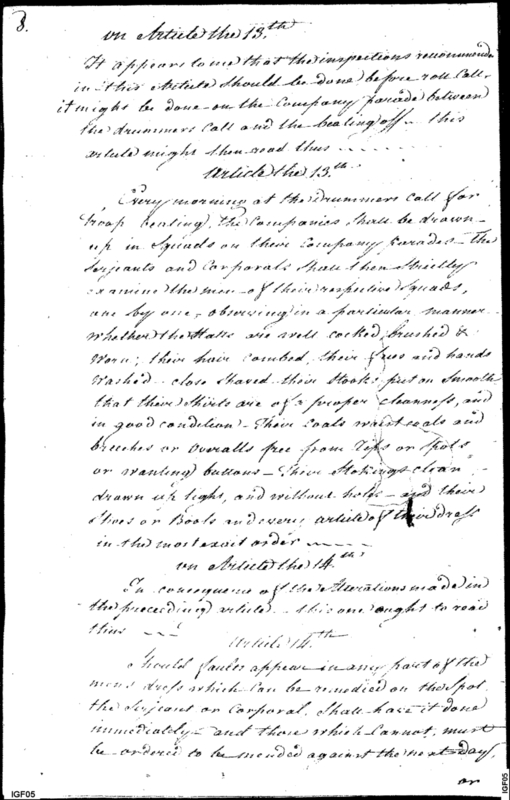 8.
on Article the 13th
It appears to me that the inspections recommende
in this Article should be done before roll Call,
it might be done on the Company parade between
the drummers call and the beating off - this
article might then read thus
Article the 13th
Every morning at the drummers call for
troop beating, the Companies Shall be drawn
up in Squads on their Company parades - The
Serjeants and Corporals Shall then Strictly
examine the men of their respective Squads,
one by one, observing in a particular manner
whether the Hatts are well cocked, brushed &
Worn; their hair combed, their faces and hands
Washed - close Shaved their Stocks put on Smooth
that their Shirts are of a proper cleanness, and
in good condition - Their Coats waistcoats and
breeches or overalls free from or Spots
or wanting buttons - Their Stokings clean
drawn up tight, and without holes - and their
Shoes or Boots and every article of their dress
in the most exact order
on Article the 14th
In consequence of the Alterations made in
the preceeding article - this one ought to read
thus
Article 14th
Should faults appear in any part of the
mens dress which can be remedied on the Spot
the Serjeant or Corporal Shall have it done
immediately - and those which Cannot, must
be ordered to be mended against the next day,
or
IGF05
IGF05